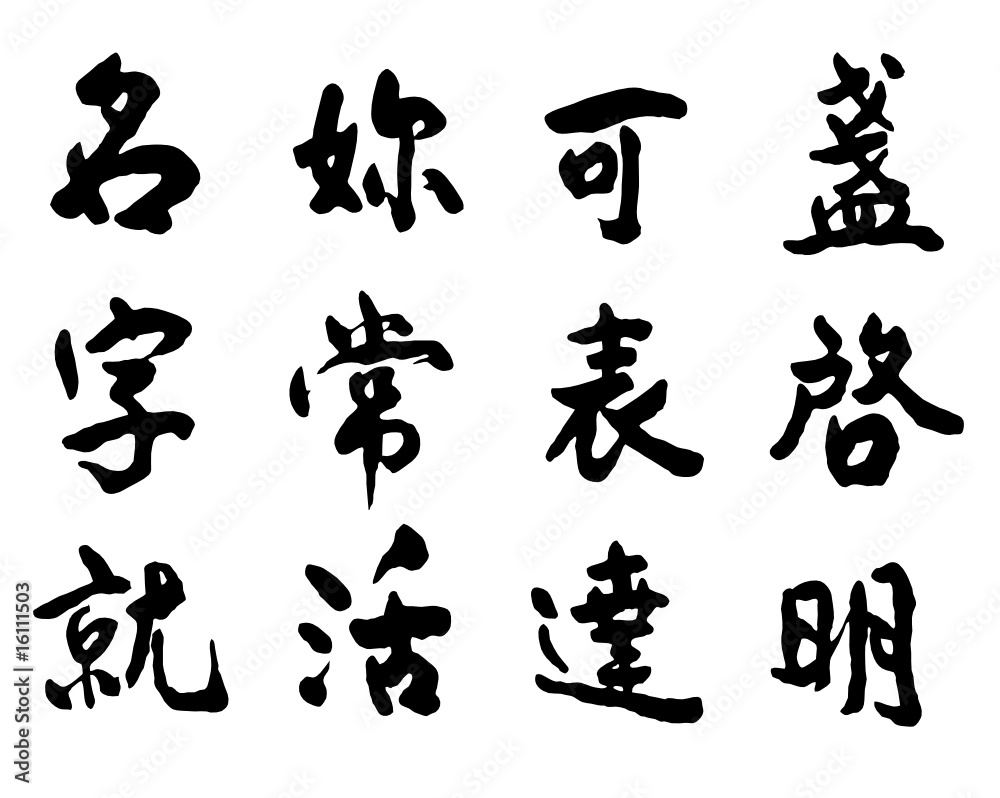 名 妳 可 盞
字 常 表 啓
就 活 達 明
Adobe Stock | #16111503